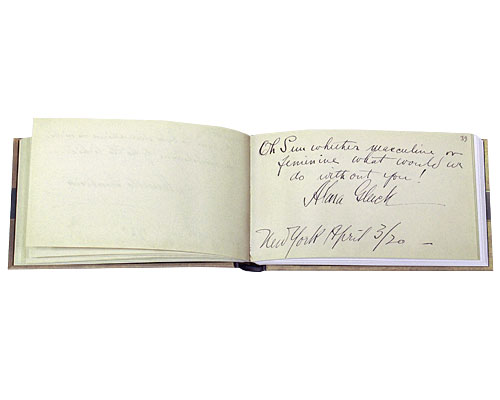 39
Oh Sun whether masculine or
feminine what would we
do without you!
Alma Gluck
New York April 3/20 —